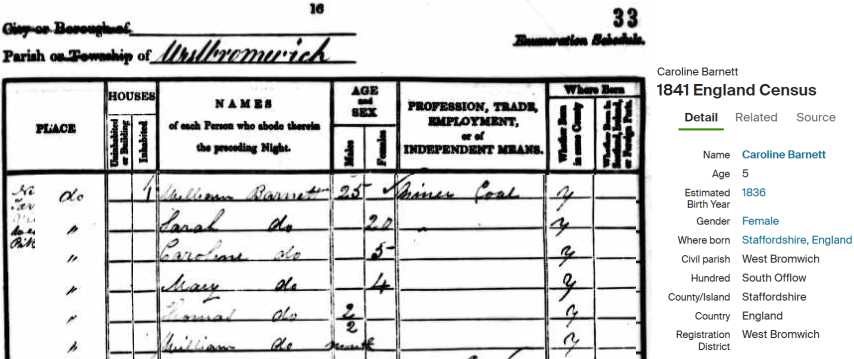 16
33
City or Borough of
Parish or Township of West Bromwich
Enumeration Schedule.
PLACE
HOUSES
Uninhabited or Building
Inhabited
NAMES
of each Person who abode therein
the preceding Night.
AGE
and
SEX
Males
Females
PROFESSION, TRADE,
EMPLOYMENT,
or of
INDEPENDENT MEANS.
Where Born
Whether Born in same County
Whether Born in Scotland, Ireland, or Foreign Parts.
do 1 William Barnett 25 Miner Coal y
" Sarah do 20 y
" Caroline do 5 y
" Mary do 4 y
" Thomas do 2 y
" William do 2 month y
Caroline Barnett
1841 England Census
Detail Related Source
Name Caroline Barnett
Age 5
Estimated Birth Year 1836
Gender Female
Where born Staffordshire, England
Civil parish West Bromwich
Hundred South Offlow
County/Island Staffordshire
Country England
Registration District West Bromwich